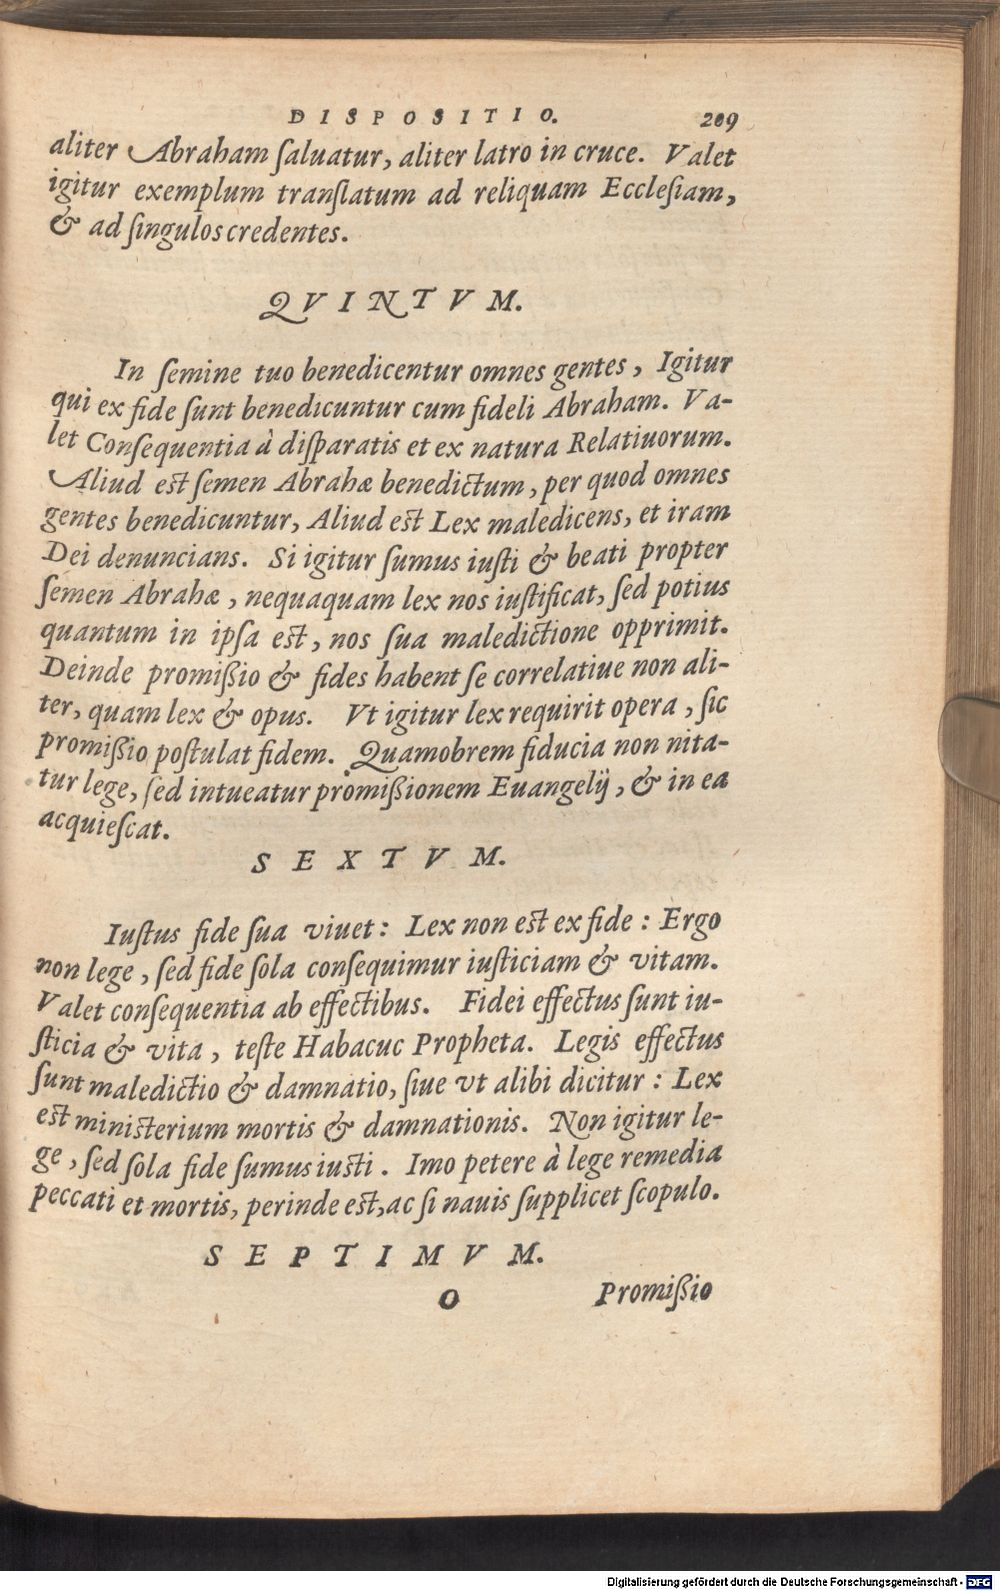 DISPOSITIO. 209
aliter Abraham ſaluatur, aliter latro in cruce. Valet
igitur exemplum tranſlatum ad reliquam Eccleſiam,
& ad ſingulos credentes.
QVINTVM.
In ſemine tuo benedicentur omnes gentes, Igitur
qui ex fide ſunt benedicuntur cum fideli Abraham. Va-
let Conſequentia à diſparatis et ex natura Relatiuorum.
Aliud est ſemen Abrahæ benedictum, per quod omnes
gentes benedicuntur, Aliud est Lex maledicens, et iram
Dei denuncians. Si igitur ſumus iuſti & beati propter
ſemen Abrahæ, nequaquam lex nos iuſtificat, ſed potius
quantum in ipſa est, nos ſua maledictione opprimit.
Deinde promißio & fides habent ſe correlatiue non ali-
ter, quam lex & opus. Vt igitur lex requirit opera, ſic
promißio poſtulat fidem. Quamobrem fiducia non nita-
tur lege, ſed intueatur promißionem Euangelij, & in ea
acquieſcat.
SEXTVM.
Iuſtus fide ſua viuet: Lex non est ex fide: Ergo
non lege, ſed fide ſola conſequimur iuſticiam & vitam.
Valet conſequentia ab effectibus. Fidei effectus ſunt iu-
ſticia & vita, teſte Habacuc Propheta. Legis effectus
ſunt maledictio & damnatio, ſiue vt alibi dicitur: Lex
est ministerium mortis & damnationis. Non igitur le-
ge, ſed ſola fide ſumus iusti. Imo petere à lege remedia
peccati et mortis, perinde est, ac ſi nauis ſupplicet ſcopulo.
SEPTIMVM.
O Promißio
Digitalisierung gefördert durch die Deutsche Forschungsgemeinschaft - DFG